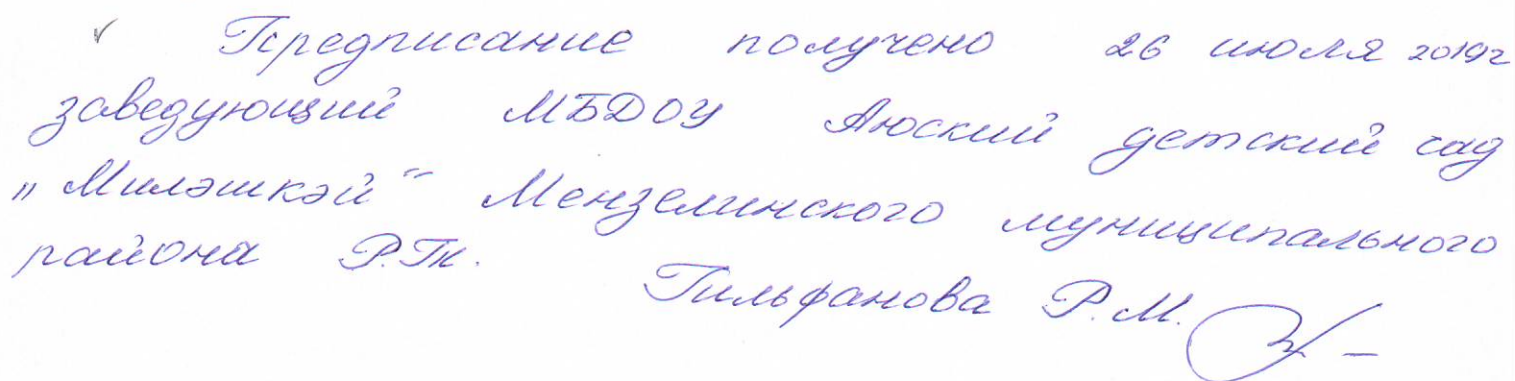 Предписание получено 26 июля 2019г
заведующий МБДОУ Аюский детский сад
„Миләшкәй“ Мензелинского муниципального
района Р.Т.
Гильфанова Р.М.